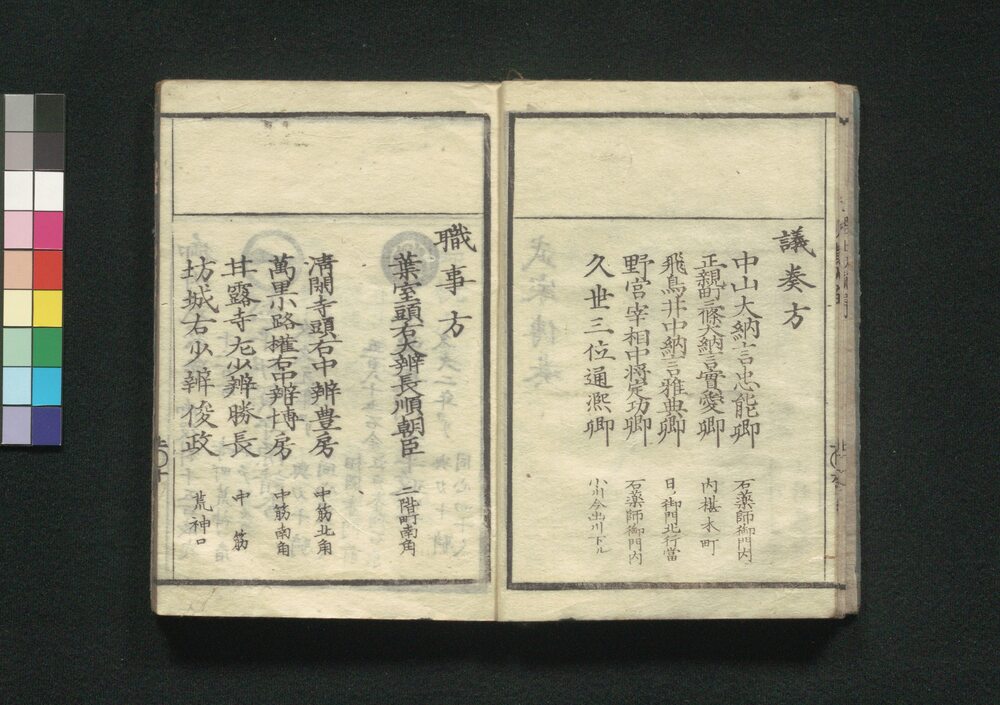 議奏方
中山大納言忠能卿 石薬師御門内
正親町三條大納言實愛卿 内椹木町
飛鳥井中納言雅典卿 日ノ御門北行當
野宮宰相中将定功卿 石薬師御門内
久世三位通凞卿 小川今出川下ル
職事方
葉室頭右大辨長順朝臣 二階町南角
清閑寺頭右中辨豊房 中筋北角
萬里小路権右中辨博房 中筋南角
甘露寺左少辨勝長 中筋
坊城右少辨俊政 荒神口